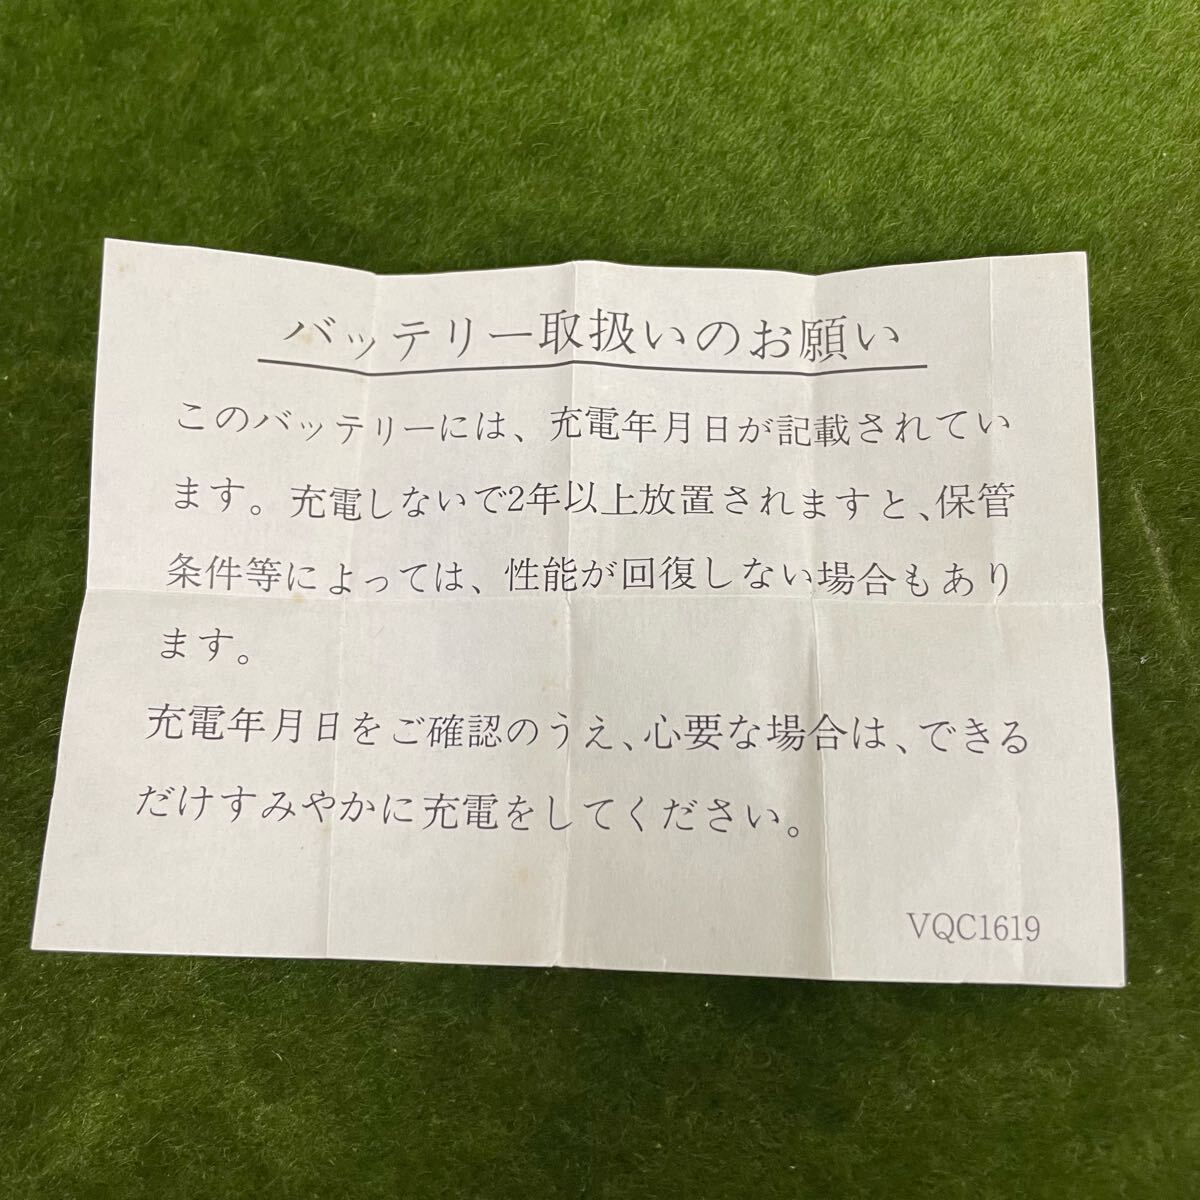 バッテリー取扱いのお願い
このバッテリーには、充電年月日が記載されてい
ます。充電しないで2年以上放置されますと、保管
条件等によっては、性能が回復しない場合もあり
ます。
充電年月日をご確認のうえ、心要な場合は、できる
だけすみやかに充電をしてください。
VQC1619